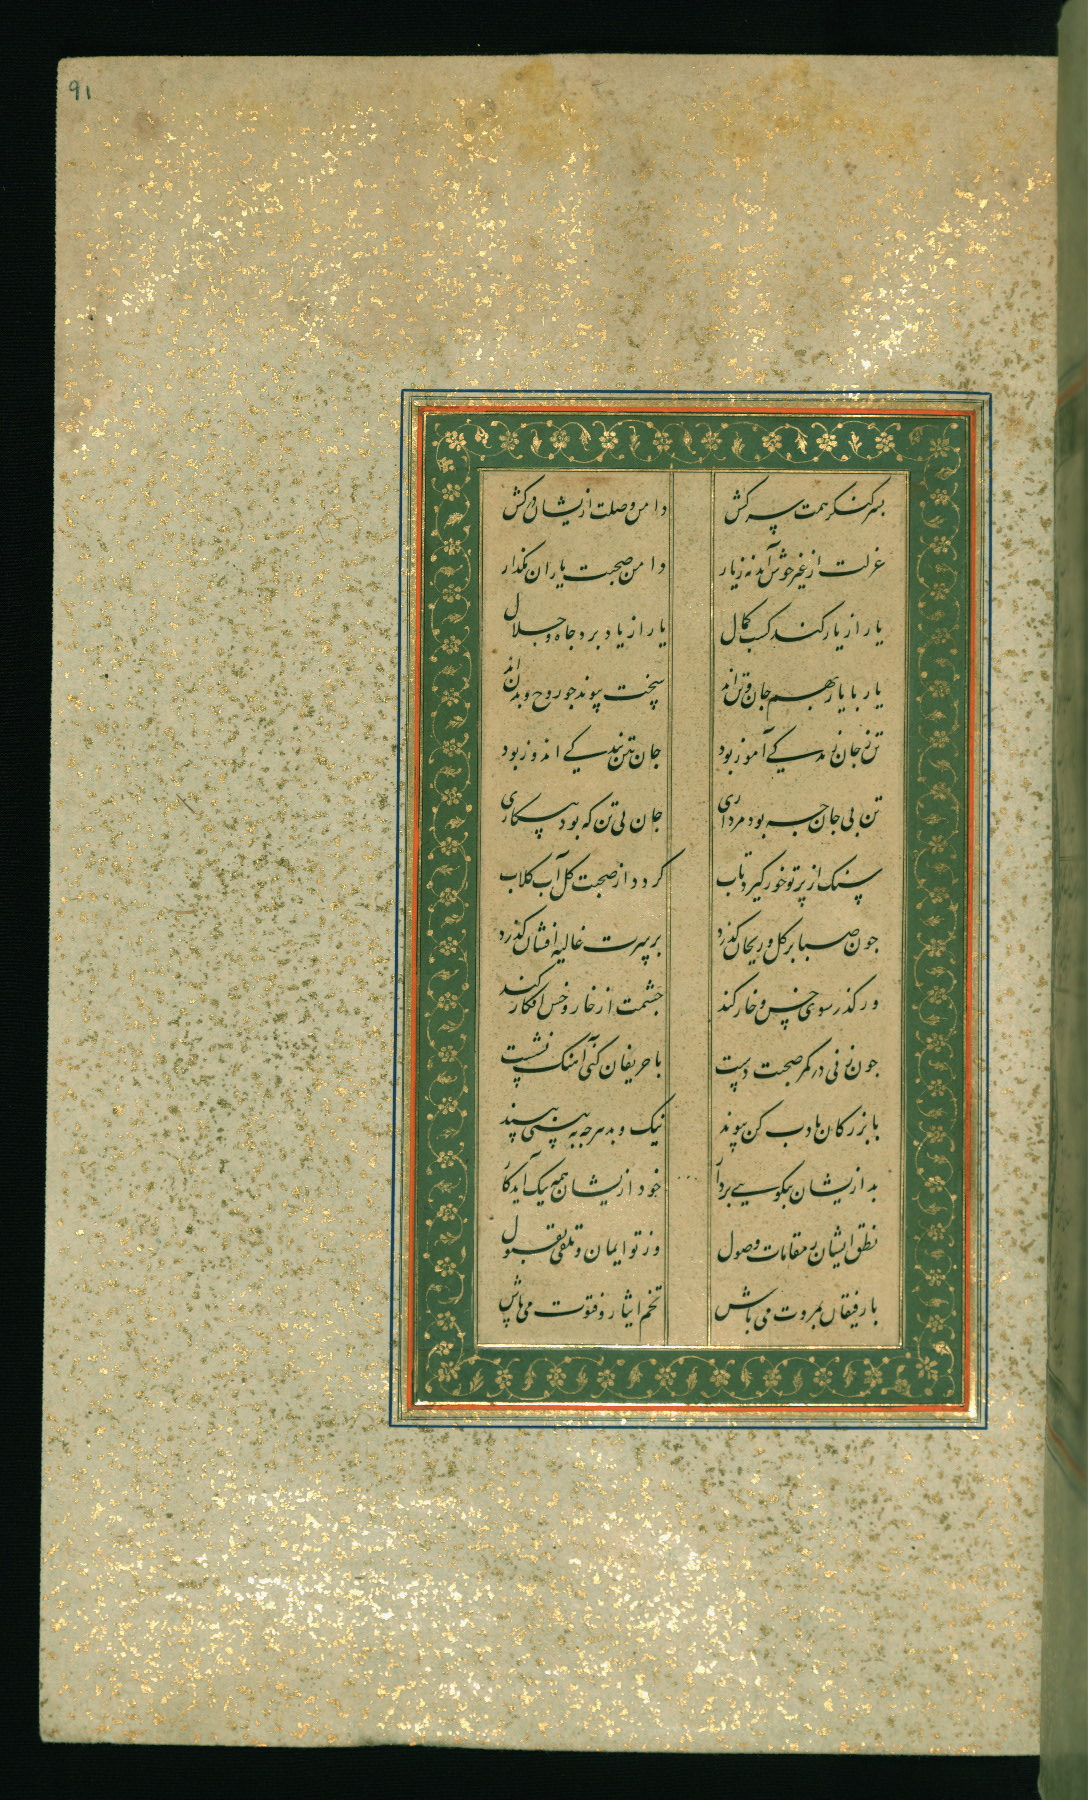 ٩١
بسر کنکر همت سرکش دامن وصلت ازیشان درکش
عزلت از غیر خوش آمد نه زیار دامن صحبت یاران مکذار
یار از یار کند کسب کمال یار از یاد برد جاه و جلال
یار با یار بهم جان و تن اند سخت پیوند جو روح و بدن اند
تن ز جان زندکی آموز بود جان بتن بندکی اندوز بود
تن بی جان جه بود مرداری جان بی تن که بود بیکاری
سنک از پرتو خور کیرد تاب کردد از صحبت کل آب کلاب
جون صبا بر کل و ریحان کذرد بر سرت غالیه افشان کذرد
ور کذر سوی خس و خار کند جشمت از خار و خس افکار کند
جون زنی در کمر صحبت دست با حریفان کنی آهنک نشست
با بزرکان بادب کن پیوند نیک و بد هرجه به بینی بپسند
بد ازیشان بنکویی بردار خود ازیشان همه نیک آید کار
نطق ایشان ز مقامات وصول وز تو ایمان و تلقی بقبول
با رفیقان بمروت می باش تخم ایثار و فتوت می پاش